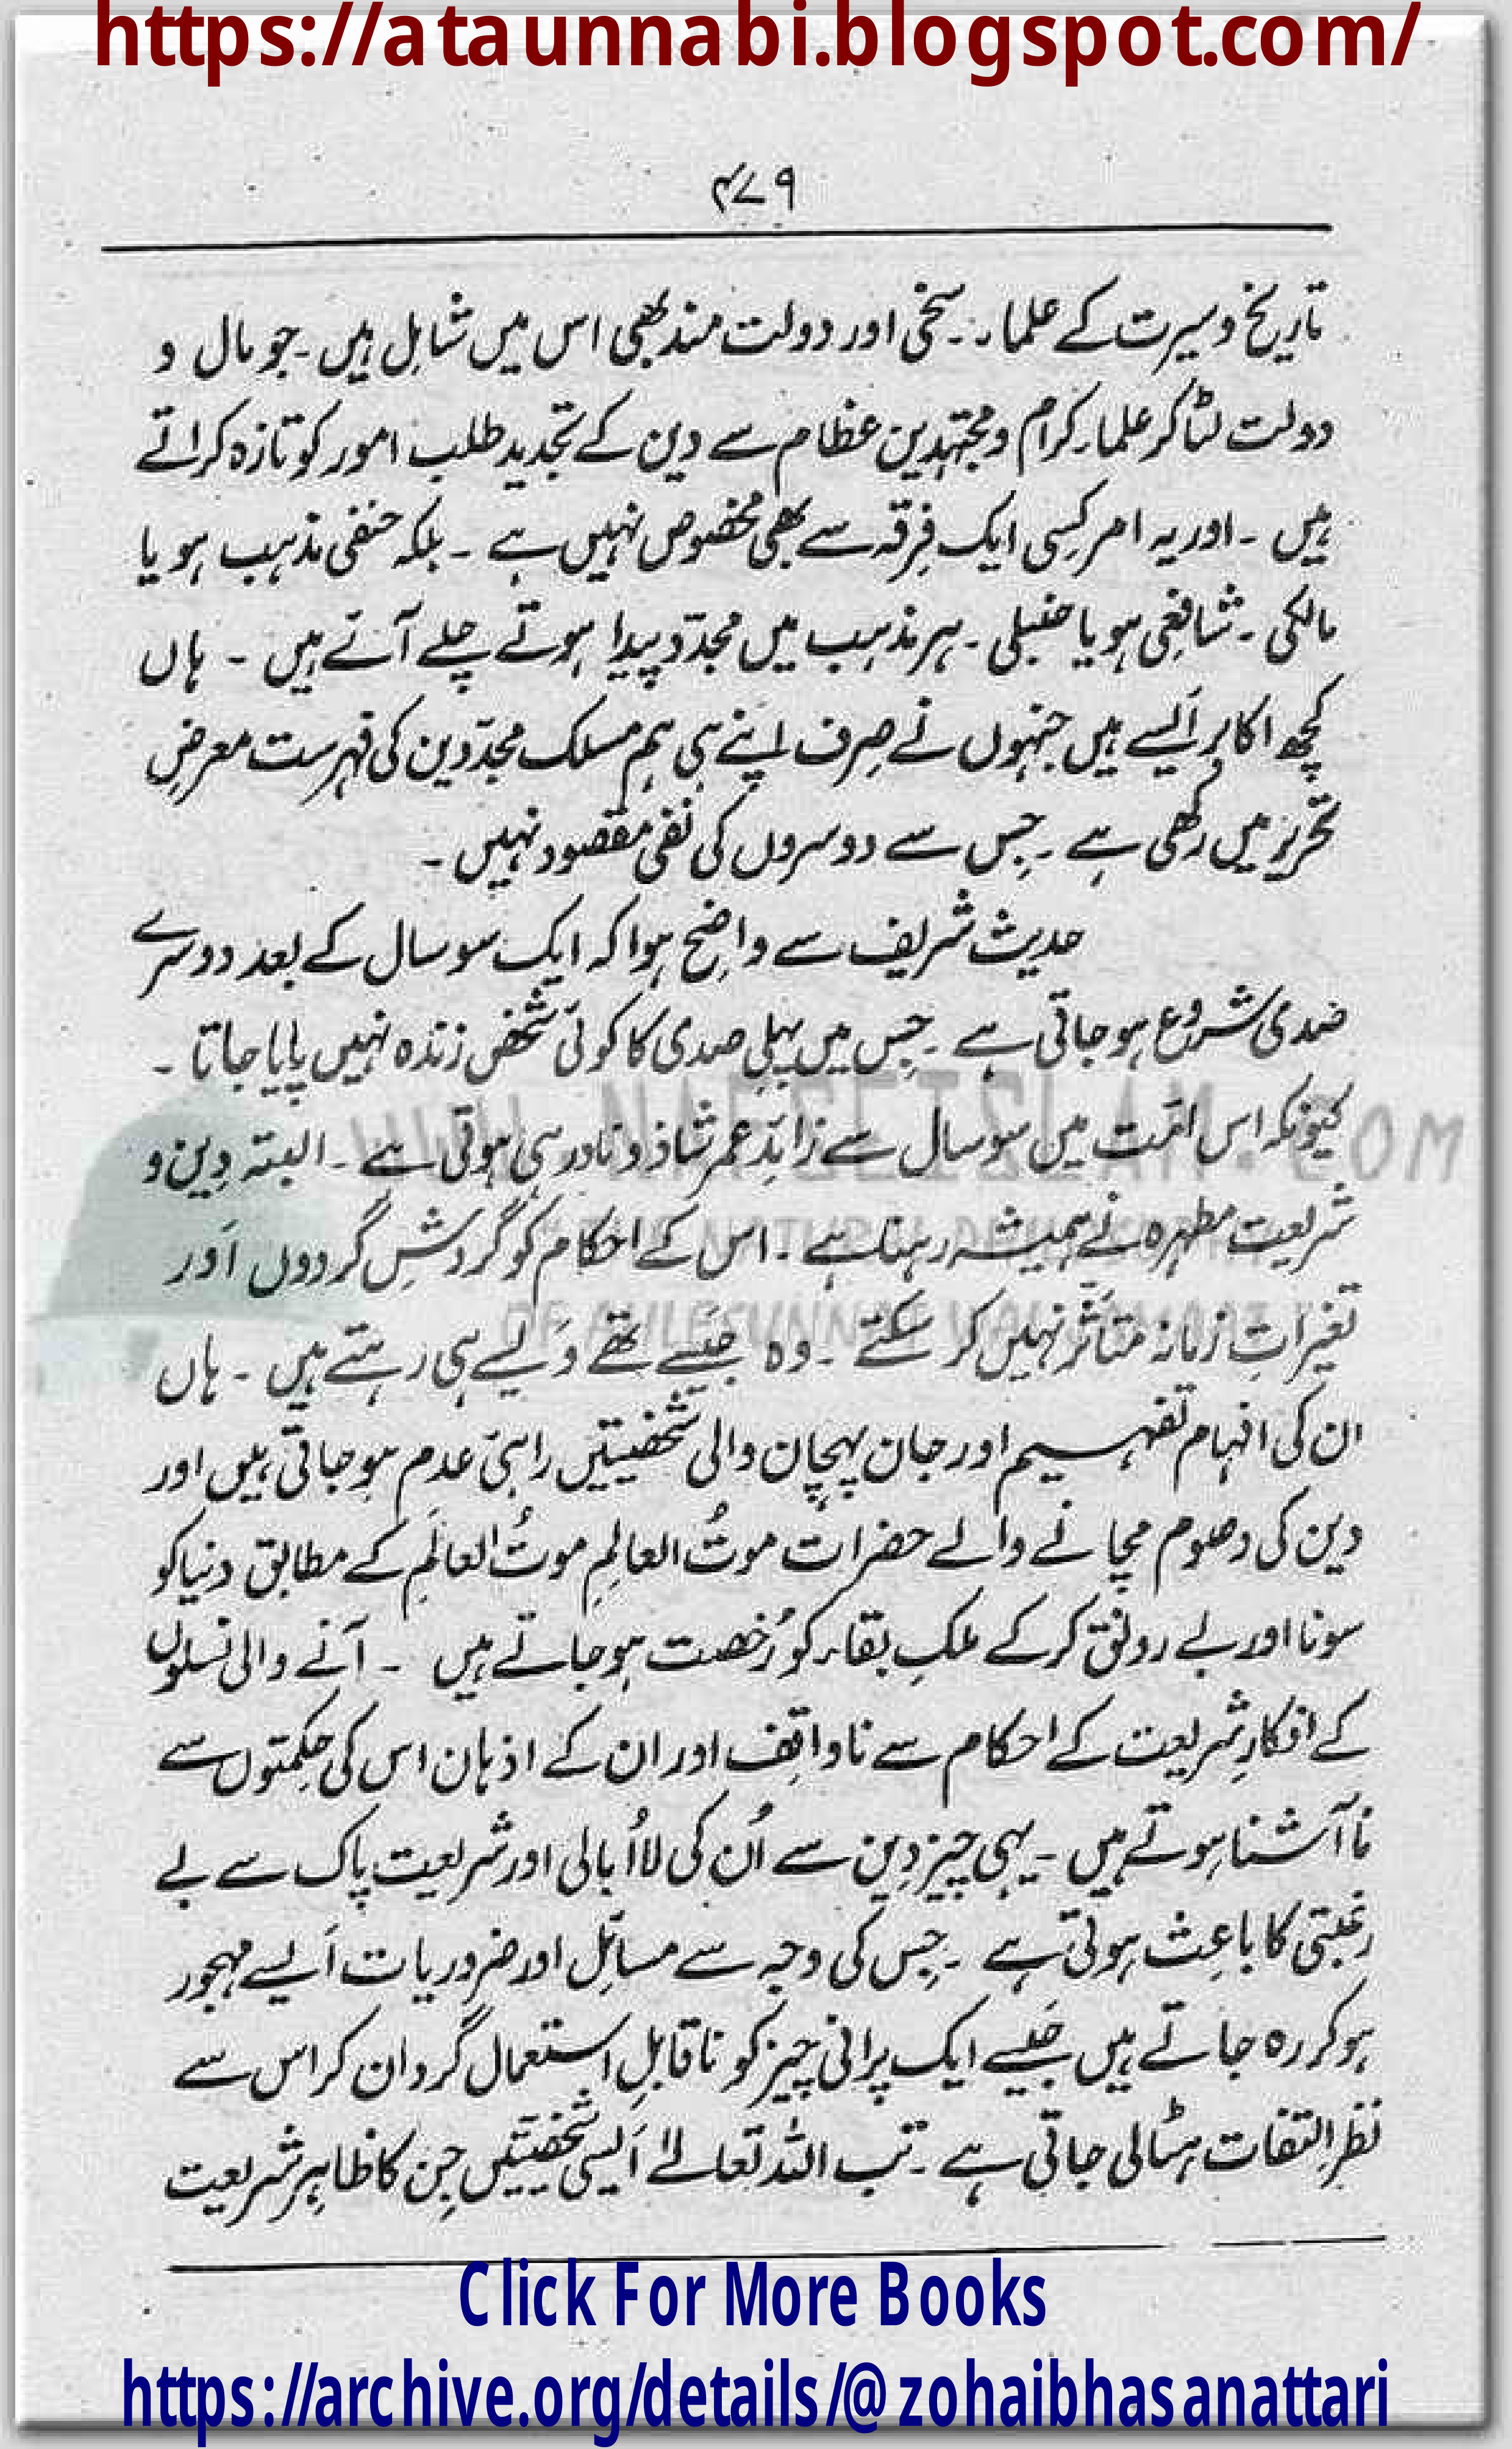 https://ataunnabi.blogspot.com/
۴۷۹
تاریخ و سیرت کے علماء ۔ سخی اور دولت مند بھی اس میں شامل ہیں ۔ جو مال و
دولت لٹا کر علماء کرام و مجتہدین عظام سے دین کے تجدید طلب امور کو تازہ کراتے
ہیں ۔ اور یہ امر کِسی ایک فِرقہ سے بھی مخصوص نہیں ہے ۔ بلکہ حنفی مذہب ہو یا
مالکی ۔ شافعی ہو یا حنبلی ۔ ہر مذہب میں مجدّد پیدا ہوتے چلے آتے ہیں ۔ ہاں
کچھ اکابر اَیسے ہیں جنہوں نے صِرف اپنے ہی ہم مسلک مجدّدین کی فہرست معرضِ
تحریر میں رکھی ہے ۔ جِس سے دوسروں کی نفی مقصود نہیں ۔
حدیث شریف سے واضح ہوا کہ ایک سو سال کے بعد دوسرے
صدی شروع ہو جاتی ہے ۔ جِس میں پہلی صدی کا کوئی شخص زندہ نہیں پایا جاتا ۔
کیونکہ اس امّت میں سو سال سے زائد عمر شاذ و نادر ہی ہوتی ہے ۔ البتہ دِین و
شریعت مطہرہ نے ہمیشہ رہنا ہے ۔ اس کے احکام کو گردشِ گردوں اَور
تغیراتِ زمانہ متاَثر نہیں کر سکتے ۔ وہ جَیسے تھے وَیسے ہی رہتے ہیں ۔ ہاں
ان کی افہام تفہیم اور جان پہچان والی شخصیتیں راہیٔ عدم ہو جاتی ہیں اور
دین کی دھوم مچانے والے حضرات موتُ العالِمِ موتُ العالَمِ کے مطابق دنیا کو
سونا اور بے رونق کر کے ملکِ بقاء کو رُخصت ہو جاتے ہیں ۔ آنے والی نسلوں
کے افکارِ شریعت کے احکام سے ناواقِف اور ان کے اذہان اس کی حِکمتوں سے
نا آشنا ہوتے ہیں ۔ یہی چیز دِین سے اُن کی لااُبالی اور شریعت پاک سے بے
رغبتی کا باعِث ہوتی ہے ۔ جِس کی وجہ سے مسائل اور ضروریات اَیسے مہجور
ہو کر رہ جاتے ہیں جَیسے ایک پرانی چیز کو ناقابلِ استعمال گردان کر اس سے
نظرِ التفات ہٹا لی جاتی ہے ۔ تب اللہ تعالےٰ اَیسی شخصیّتیں جِن کا ظاہِر شریعت
WWW.NAFSEISLAM.COM
Click For More Books
https://archive.org/details/@zohaibhasanattari